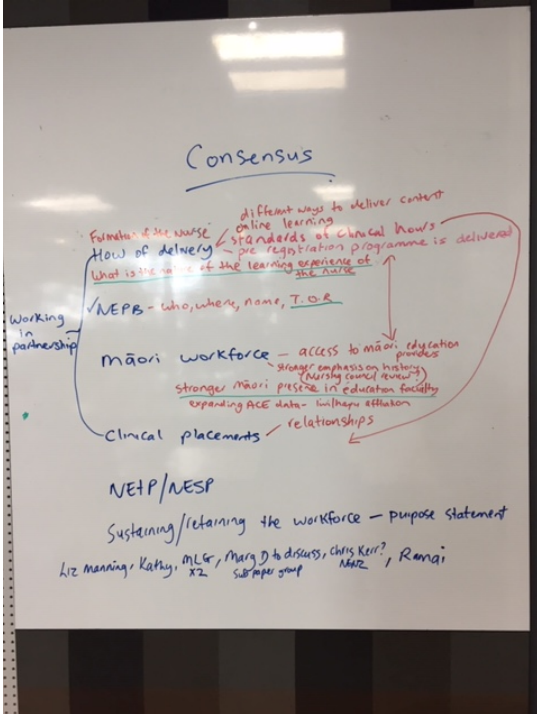 Consensus
different ways to deliver content
online learning
Formation of the nurse
standards of clinical hours
How of delivery – pre registration programme is delivered
What is the nature of the learning experience of
the nurse
✓NEPB – who, where, name, T.O.R
Working
in
partnership
māori workforce – access to māori education
providers
stronger emphasis on history
(Nursing council review?)
stronger māori presence in education faculty
expanding ACE data – iwi/hapu affliation
Clinical placements – relationships
NEtP/NESP
Sustaining/retaining the workforce – purpose statement
Liz manning, Kathy, MLG, Marg D to discuss, Chris Kerr?, Ramai
X2 sub paper group NENZ